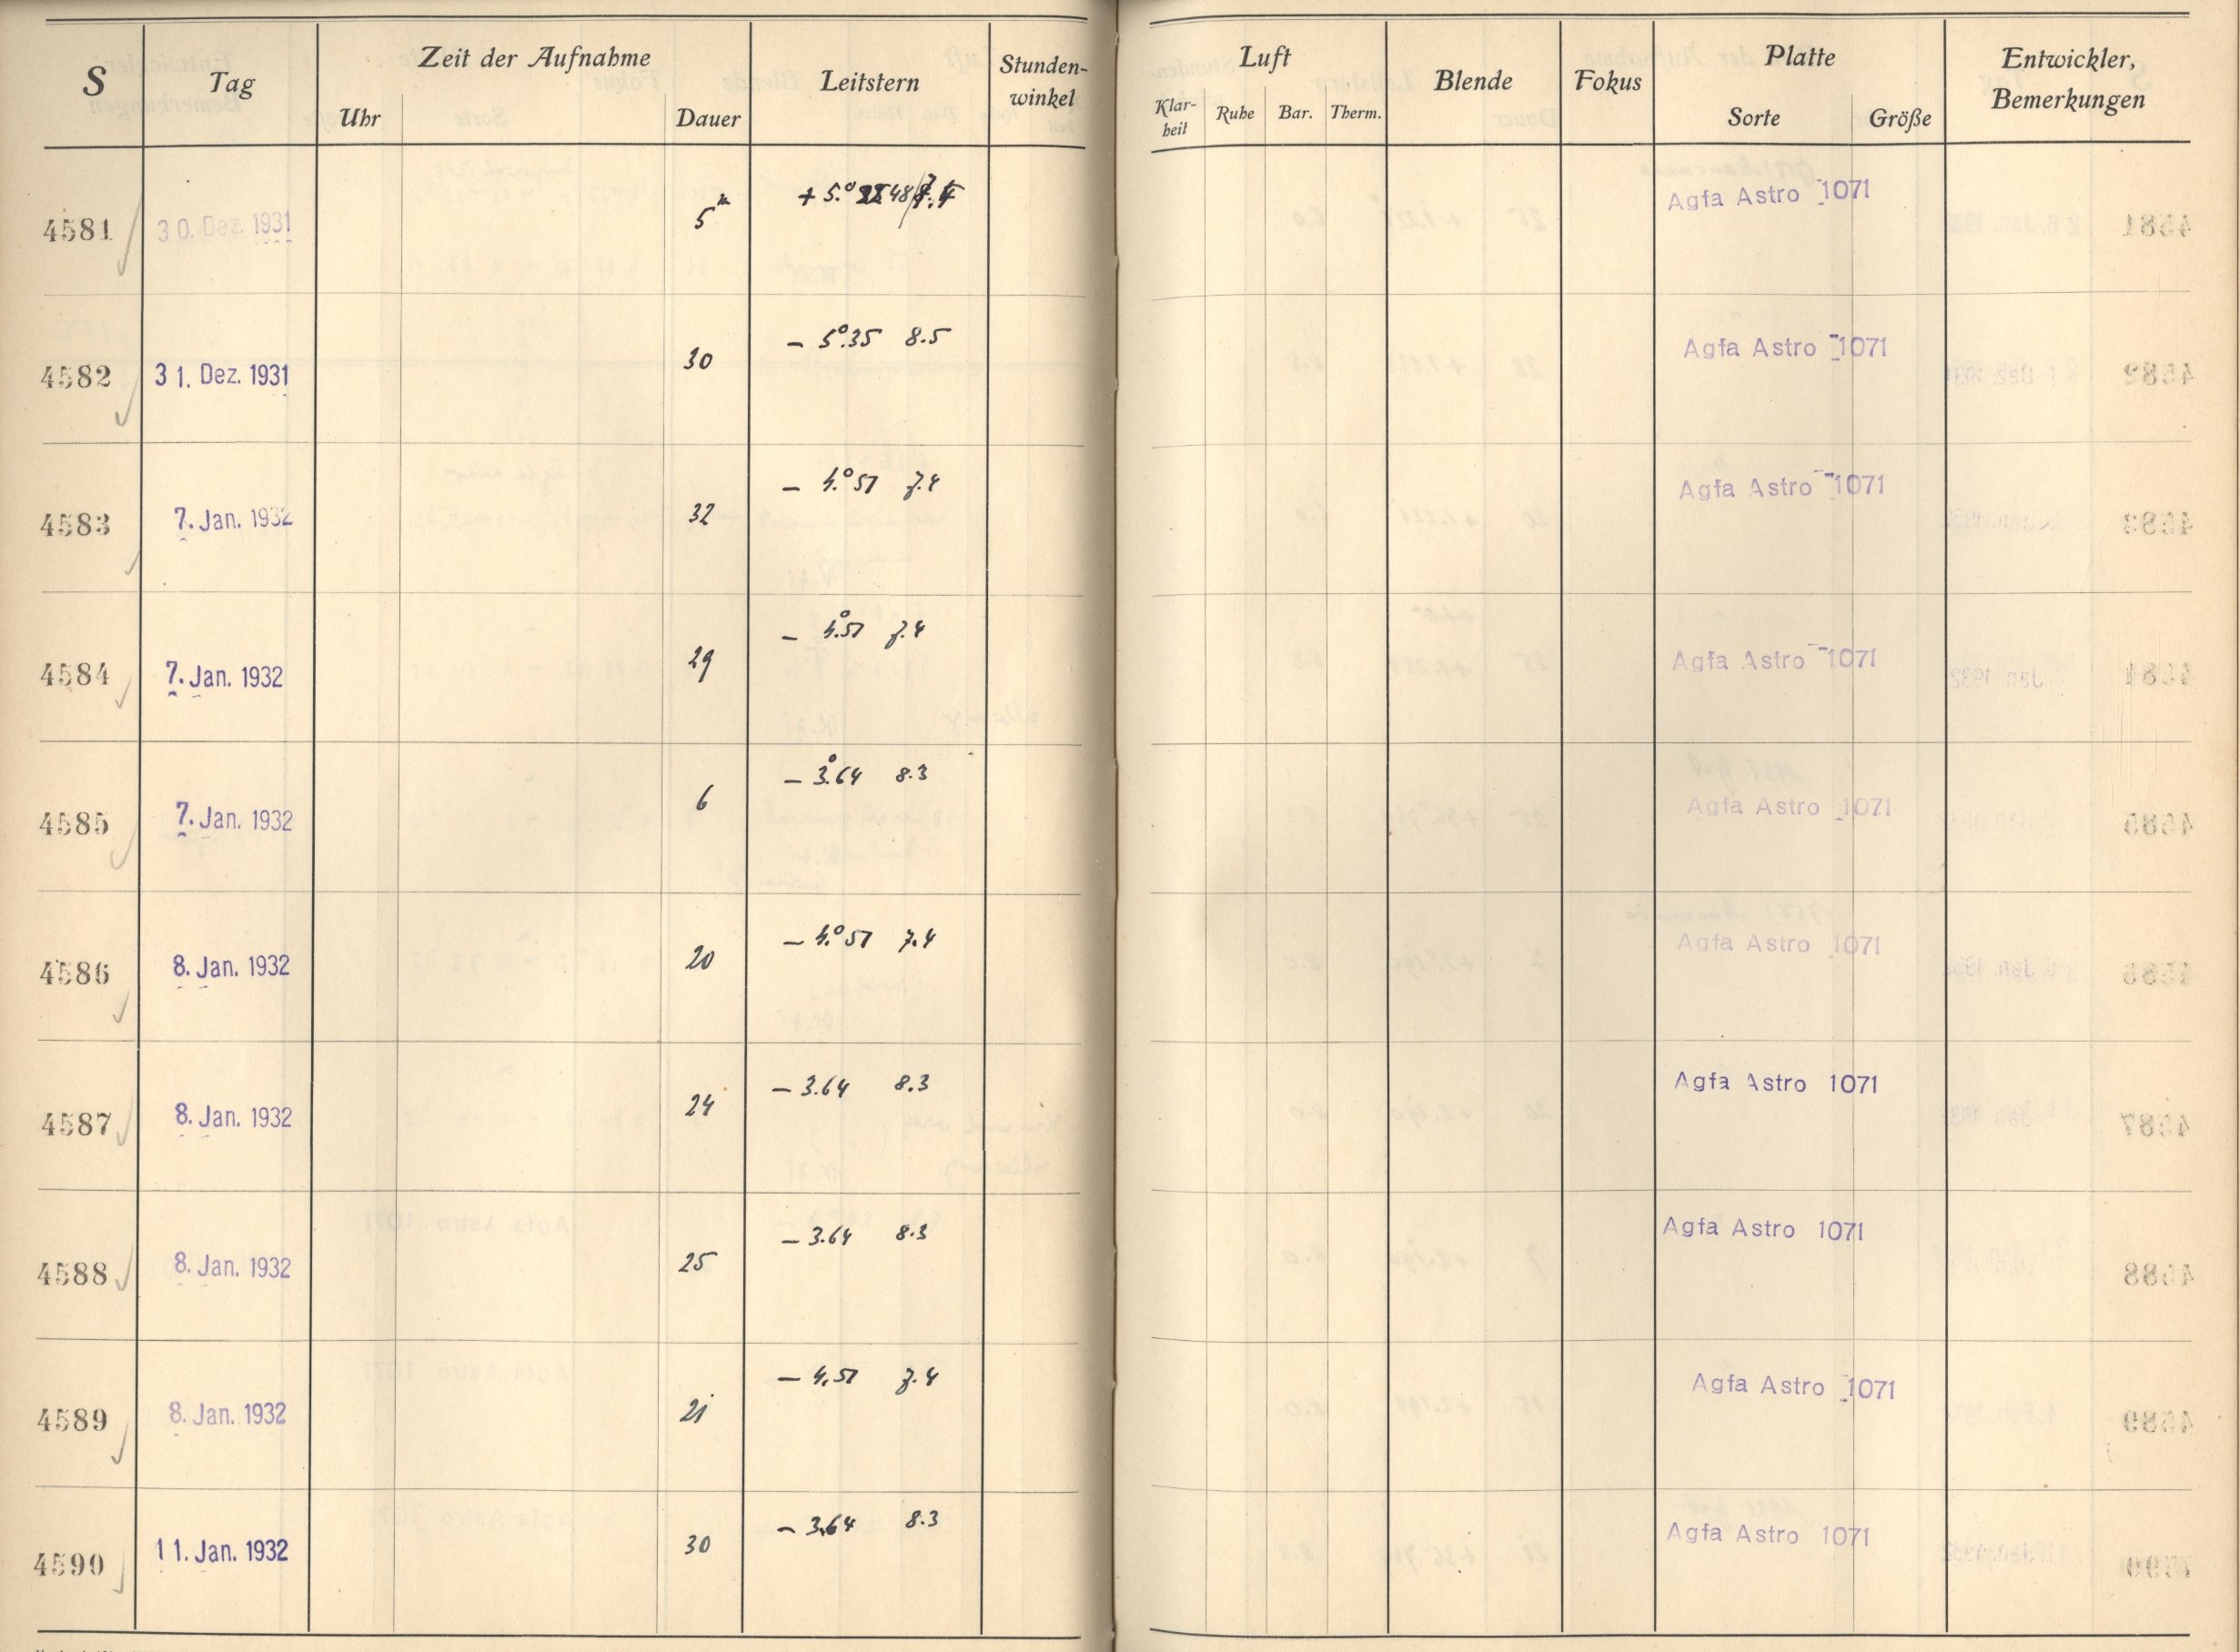 S Tag Zeit der Aufnahme Leitstern Stunden-winkel Luft Blende Fokus Platte Entwickler, Bemerkungen
Uhr Dauer Klar-heit Ruhe Bar. Therm. Sorte Größe
4581 30. Dez. 1931 5m + 5.° 48 Agfa Astro 1071
4582 31. Dez. 1931 30 – 5°.35 8.5 Agfa Astro 1071
4583 7. Jan. 1932 32 – 4.°57 7.4 Agfa Astro 1071
4584 7. Jan. 1932 29 – 4°.57 7.4 Agfa Astro 1071
4585 7. Jan. 1932 6 – 3°.64 8.3 Agfa Astro 1071
4586 8. Jan. 1932 20 – 4.°57 7.4 Agfa Astro 1071
4587 8. Jan. 1932 24 – 3.64 8.3 Agfa Astro 1071
4588 8. Jan. 1932 25 – 3.64 8.3 Agfa Astro 1071
4589 8. Jan. 1932 21 – 4.57 7.4 Agfa Astro 1071
4590 11. Jan. 1932 30 – 3.64 8.3 Agfa Astro 1071